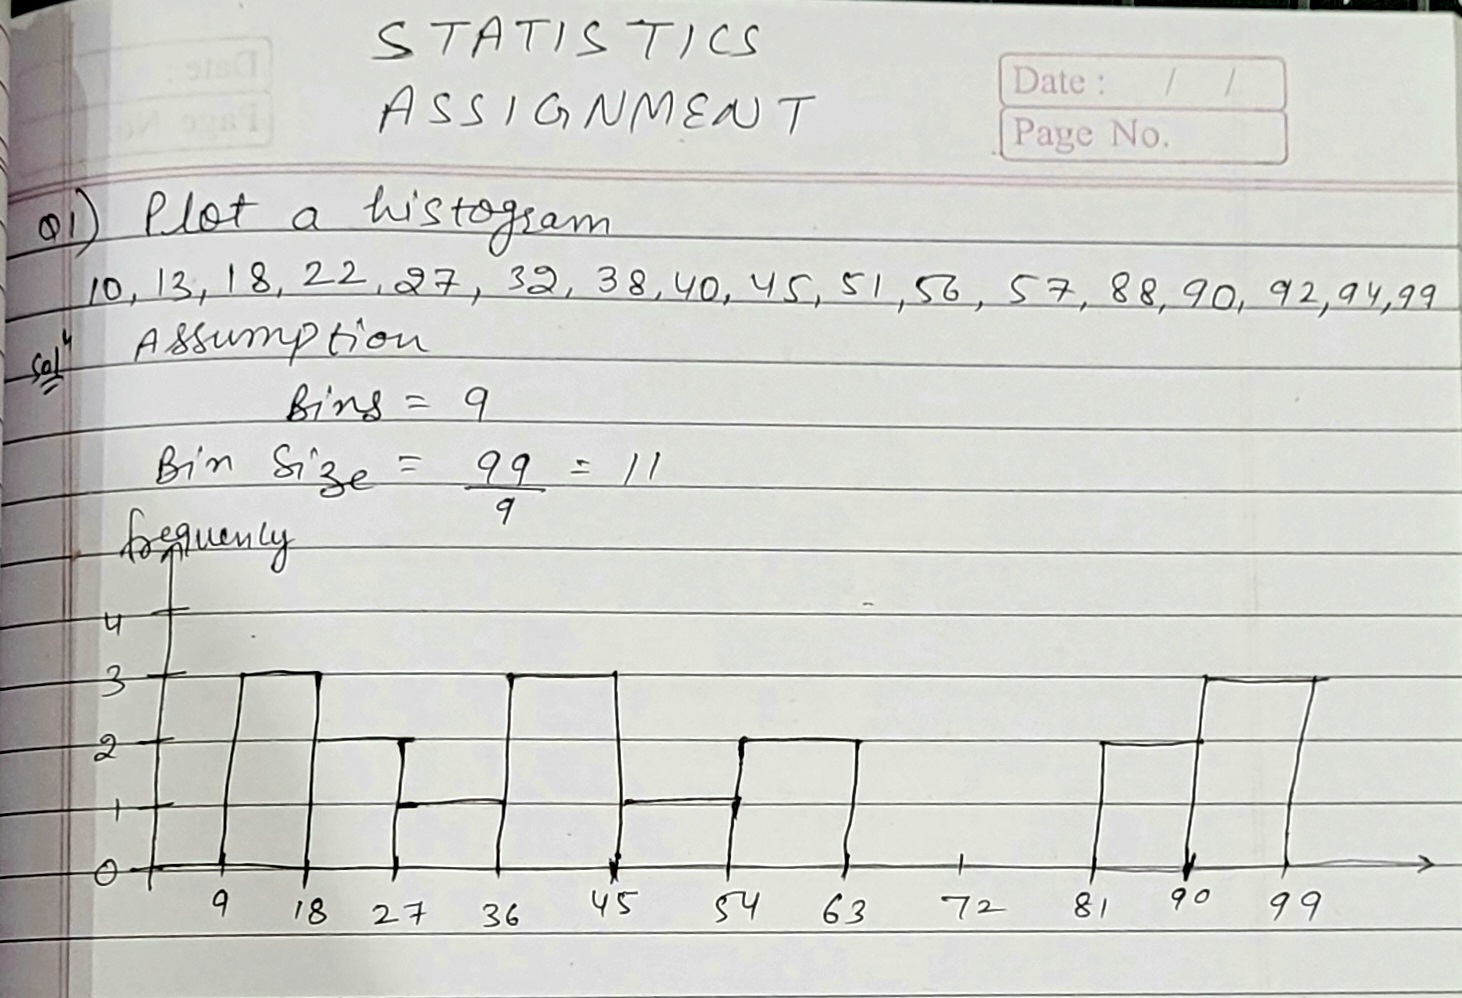 STATISTICS
ASSIGNMENT
Date : / /
Page No.
Q1) Plot a histogram
10, 13, 18, 22, 27, 32, 38, 40, 45, 51, 56, 57, 88, 90, 92, 94, 99
Solⁿ Assumption
Bins = 9
Bin Size = 99/9 = 11
frequency
4
3
2
1
0
9 18 27 36 45 54 63 72 81 90 99